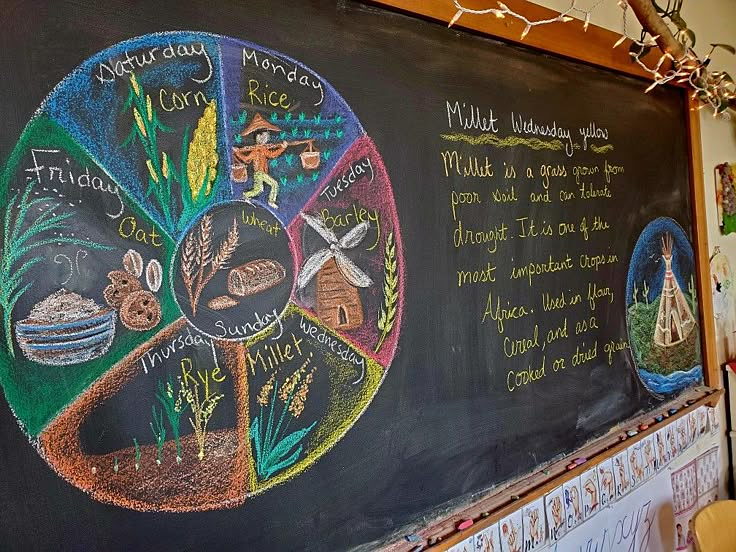 Saturday
Corn
Monday
Rice
Tuesday
Barley
Friday
Oat
Wheat
Sunday
Thursday
Rye
Wednesday
Millet
Millet Wednesday yellow
Millet is a grass grown from
poor soil and can tolerate
drought. It is one of the
most important crops in
Africa. Used in flour,
cereal, and as a
cooked or dried grain